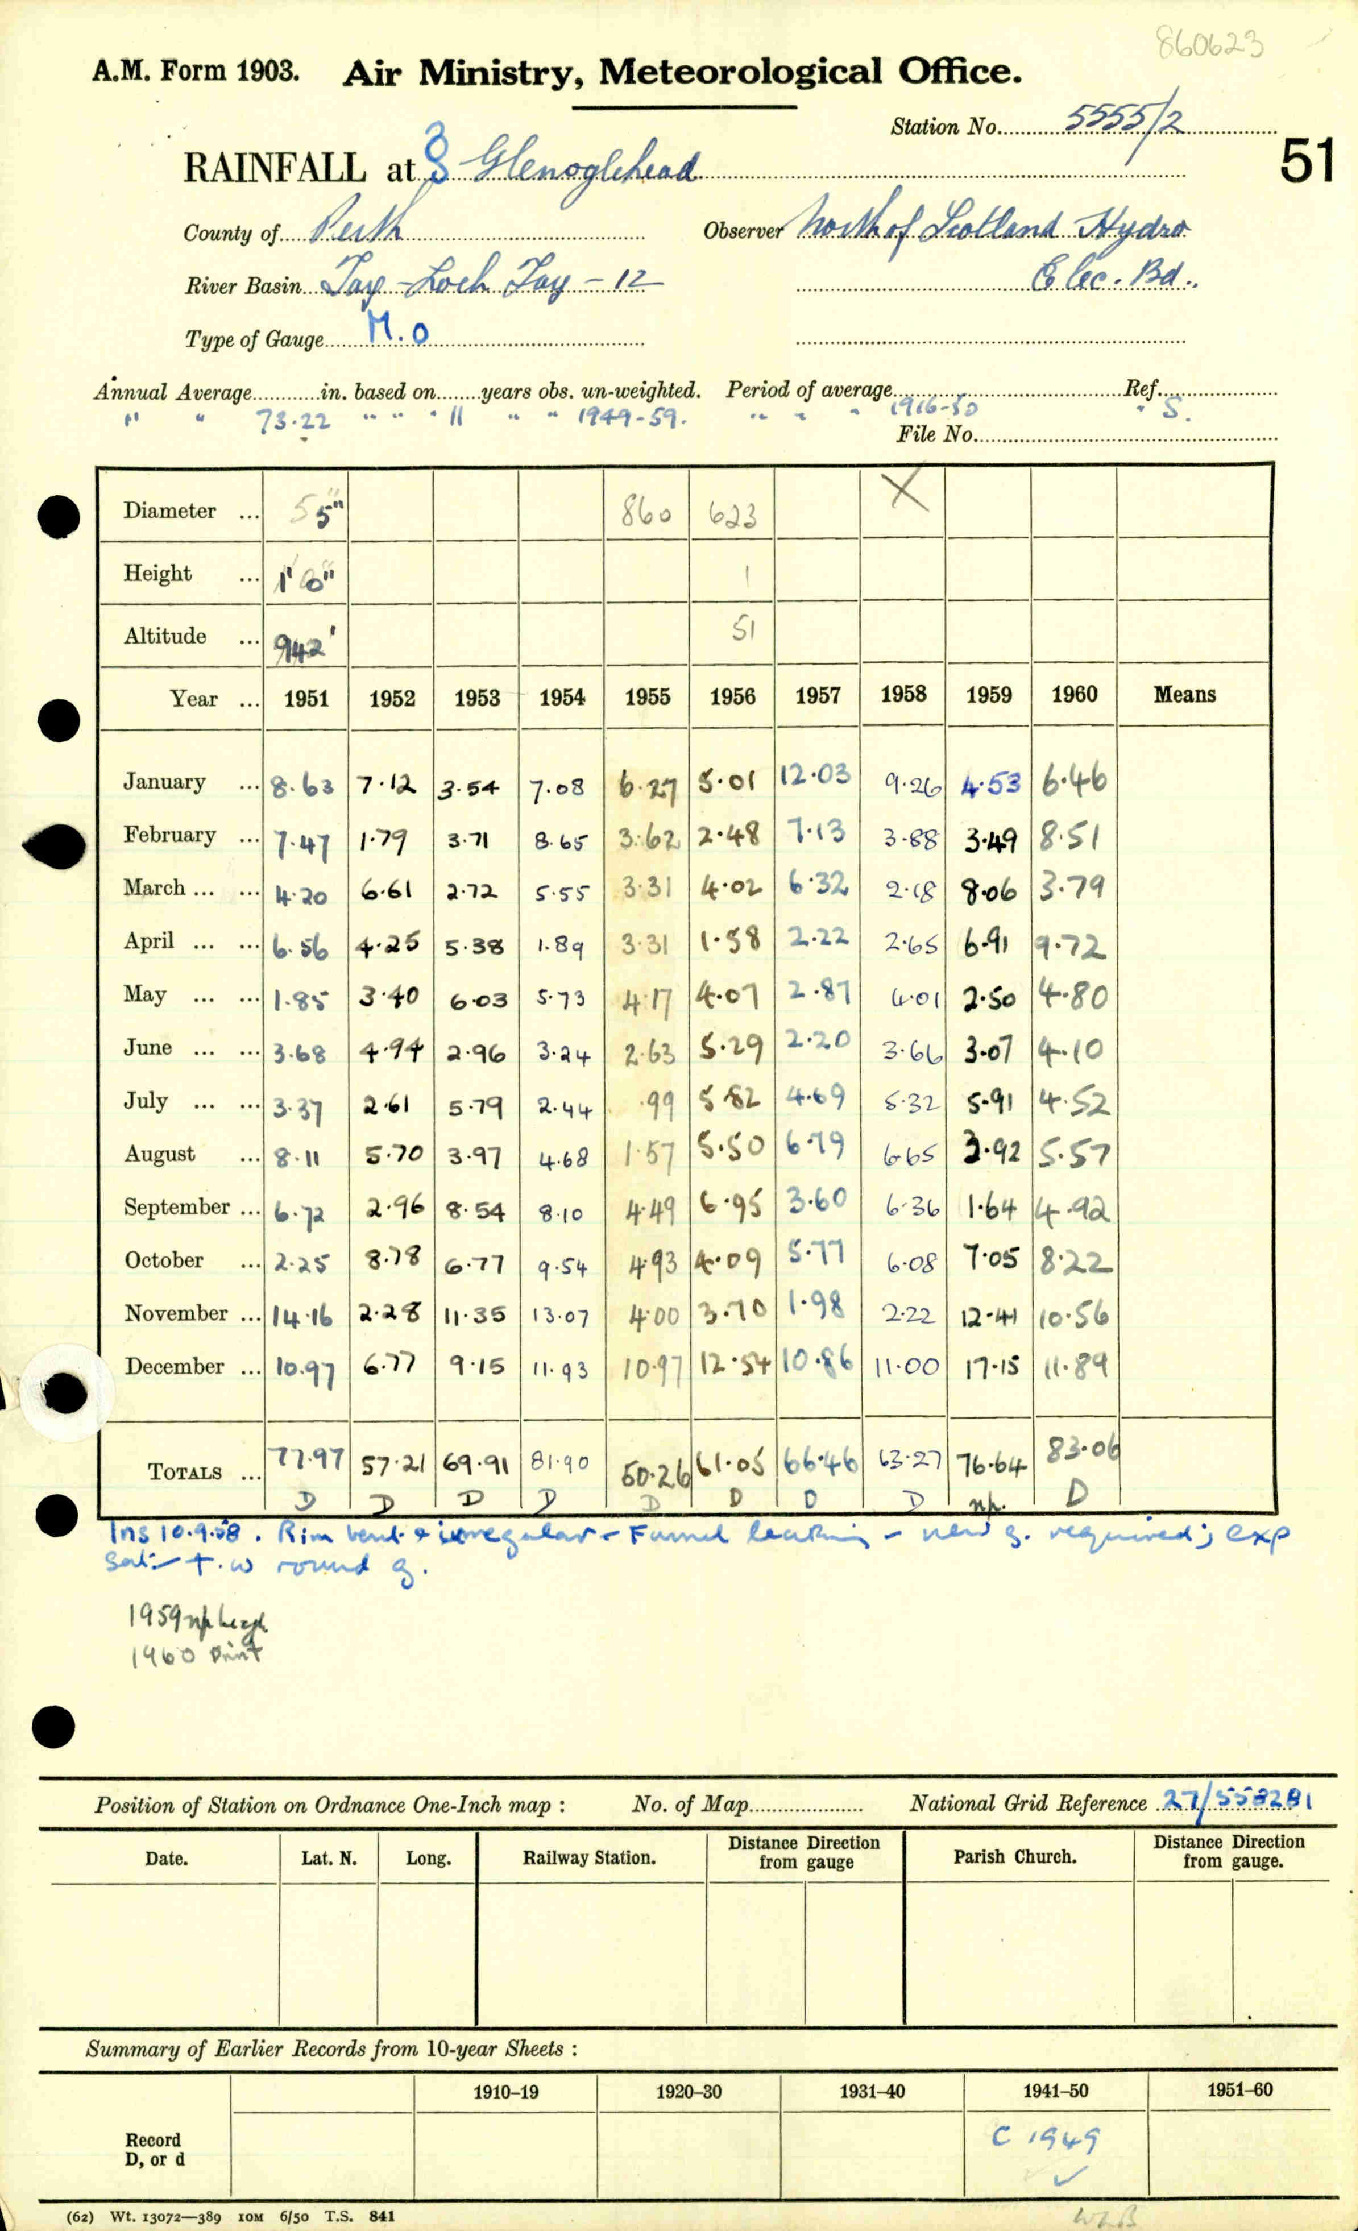 860623
A.M. Form 1903. Air Ministry, Meteorological Office.
Station No. 5555/2
51
RAINFALL at Glenoglehead
County of Perth Observer North of Scotland Hydro
River Basin Tay - Loch Tay - 12 Elec. Bd.
Type of Gauge M.O
Annual Average in. based on years obs. un-weighted. Period of average Ref.
" " 73.22 " " " 11 " " 1949-59. " " " 1916-50 " S.
File No.
Diameter ... 5" 860 623 X
Height ... 1' 0" 1
Altitude ... 942' 51
Year ... 1951 1952 1953 1954 1955 1956 1957 1958 1959 1960 Means
January ... 8.63 7.12 3.54 7.08 6.27 5.01 12.03 9.26 4.53 6.46
February ... 7.47 1.79 3.71 8.65 3.62 2.48 7.13 3.88 3.49 8.51
March ... ... 4.20 6.61 2.72 5.55 3.31 4.02 6.32 2.18 8.06 3.79
April ... ... 6.56 4.25 5.38 1.89 3.31 1.58 2.22 2.65 6.91 9.72
May ... ... 1.85 3.40 6.03 5.73 4.17 4.07 2.87 4.01 2.50 4.80
June ... ... 3.68 4.94 2.96 3.24 2.63 5.29 2.20 3.66 3.07 4.10
July ... ... 3.37 2.61 5.79 2.44 .99 5.82 4.69 5.32 5.91 4.52
August ... 8.11 5.70 3.97 4.68 1.57 5.50 6.79 6.65 3.92 5.57
September ... 6.72 2.96 8.54 8.10 4.49 6.95 3.60 6.36 1.64 4.92
October ... 2.25 8.78 6.77 9.54 4.93 4.09 5.77 6.08 7.05 8.22
November ... 14.16 2.28 11.35 13.07 4.00 3.70 1.98 2.22 12.41 10.56
December ... 10.97 6.77 9.15 11.93 10.97 12.54 10.86 11.00 17.15 11.89
TOTALS ... 77.97 57.21 69.91 81.90 50.26 61.05 66.46 63.27 76.64 83.06
D D D D D D D D np. D
Ins 10.9.58. Rim bent & irregular - Funnel leaking - new g. required; exp
sat:- t.w round g.
1959 np
1960 print
Position of Station on Ordnance One-Inch map : No. of Map National Grid Reference 27/558281
Date. Lat. N. Long. Railway Station. Distance from Direction gauge Parish Church. Distance from Direction gauge.
Summary of Earlier Records from 10-year Sheets :
1910–19 1920–30 1931–40 1941–50 1951–60
Record
D, or d
C 1949
✓
(62) Wt. 13072—389 10M 6/50 T.S. 841